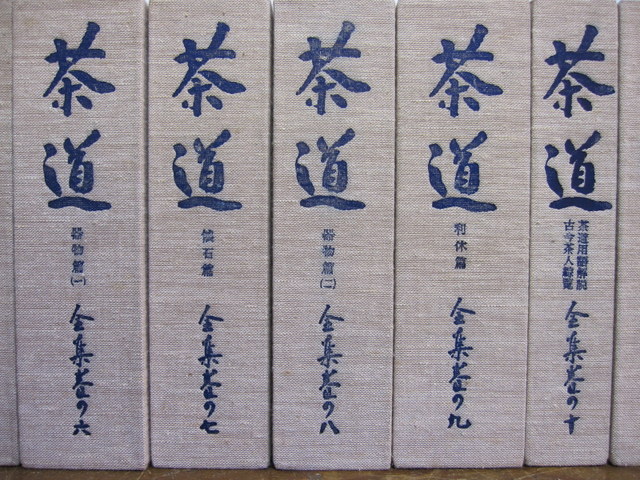 茶道
器物篇(一)
全集巻の六
茶道
懐石篇
全集巻の七
茶道
器物篇(二)
全集巻の八
茶道
利休篇
全集巻の九
茶道
茶道用語解説
古今茶人綜覧
全集巻の十